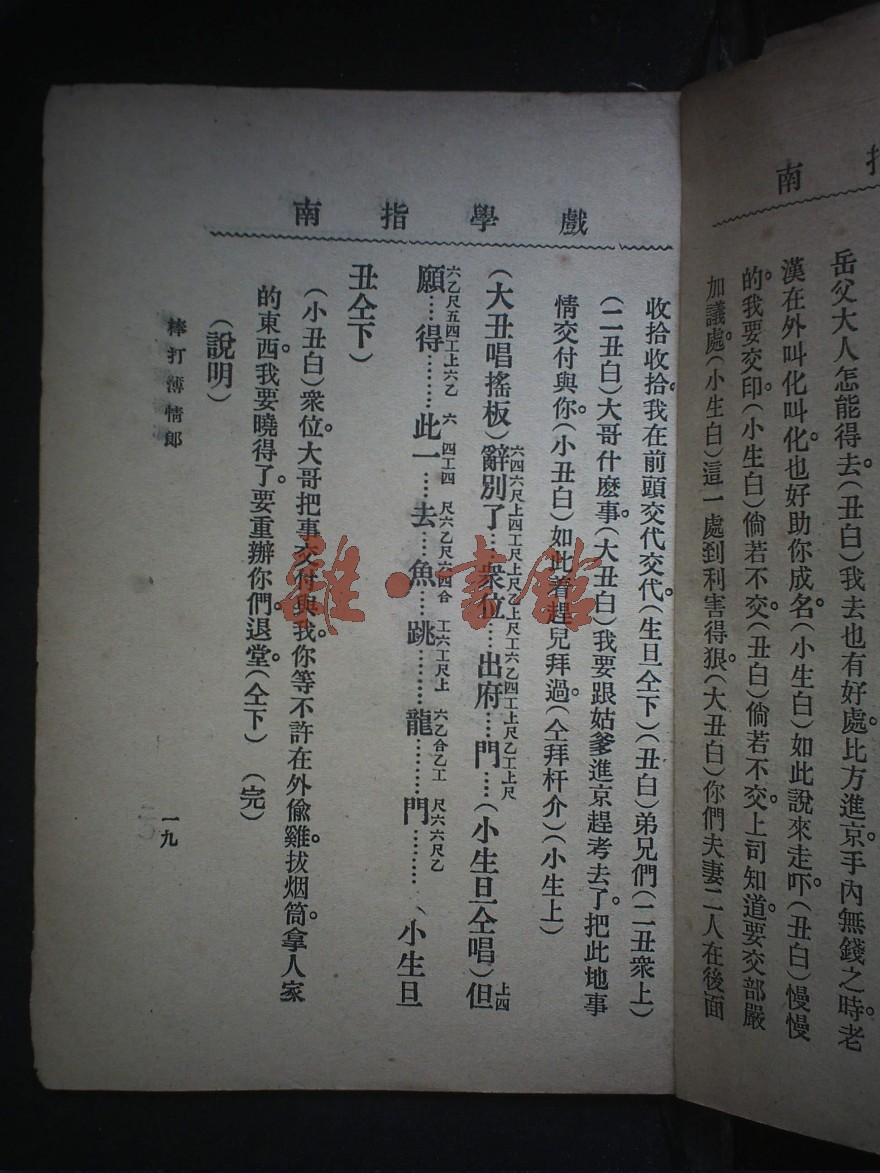 南指
岳父大人怎能得去。(丑白)我去也有好處。比方進京手內無錢之時。老
漢在外叫化叫化。也好助你成名。(小生白)如此說來走吓。(丑白)慢慢
的。我要交印。(小生白)倘若不交。(丑白)倘若不交。上司知道。要交部嚴
加議處。(小生白)這一處到利害得狠。(大丑白)你們夫妻二人在後面
南指學戲
收拾收拾。我在前頭交代交代。(生旦仝下)(丑白)弟兄們(二丑衆上)
(二丑白)大哥什麽事。(大丑白)我要跟姑爹進京趕考去了。把此地事
情交付與你。(小丑白)如此着趕兒拜過。(仝拜杆介)(小生上)
六四六尺上四工尺上尺乙上尺工六乙四工上尺乙工上尺
上四
(大丑唱搖板)辭別了…衆位…出府……門……(小生旦仝唱)但
六乙尺五四工上六乙 六 四工四 尺六乙尺六四合 工六工尺上 六乙合乙工 尺六六尺乙
願……得………此一……去……魚……跳………龍………門………(小生旦
丑仝下)
(小丑白)衆位大哥把事交付與我。你等不許在外偸雞拔烟筒。拿人家
的東西。我要曉得了。要重辦你們。退堂(仝下) (完)
(說明)
棒打薄情郎
一九
雜·書館